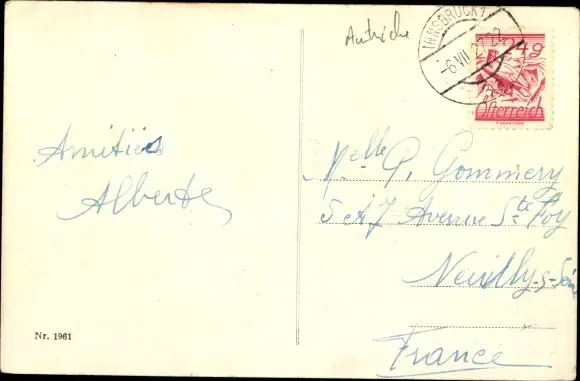 Autriche
INNSBRUCK 1
-6.VII.27 22
24g
Österreich
Amitiés
Alberte
Melle G. Gommery
5 A 7 Avenue Ste Foy
Neuilly-s-Seine
France
Nr. 1961